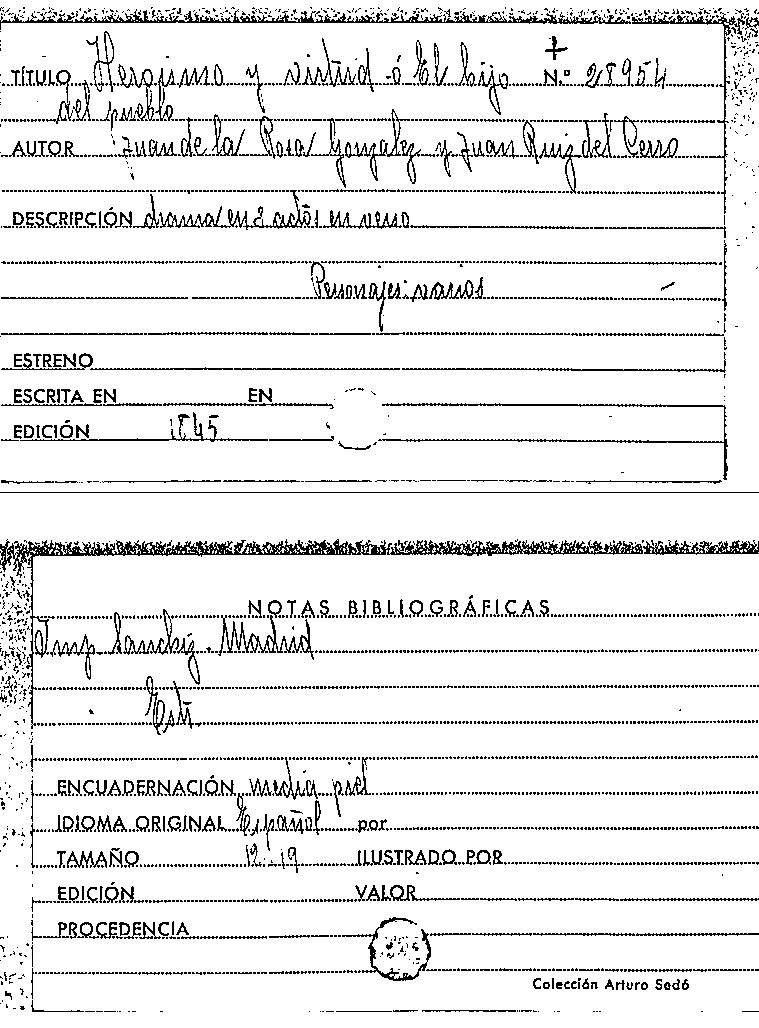 +
TÍTULO Heroismo y virtud ó El hijo N.º 28954
del pueblo
AUTOR Juan de la Rosa Gonzalez y Juan Ruiz del Cerro
DESCRIPCIÓN drama en 2 actos en verso
Personajes: varios -
ESTRENO
ESCRITA EN EN
EDICIÓN 1845
NOTAS BIBLIOGRÁFICAS
Imp Sanchez. Madrid
Estr.
ENCUADERNACIÓN media piel
IDIOMA ORIGINAL Español por
TAMAÑO 12-19 ILUSTRADO POR
EDICIÓN VALOR
PROCEDENCIA
Colección Arturo Sedó